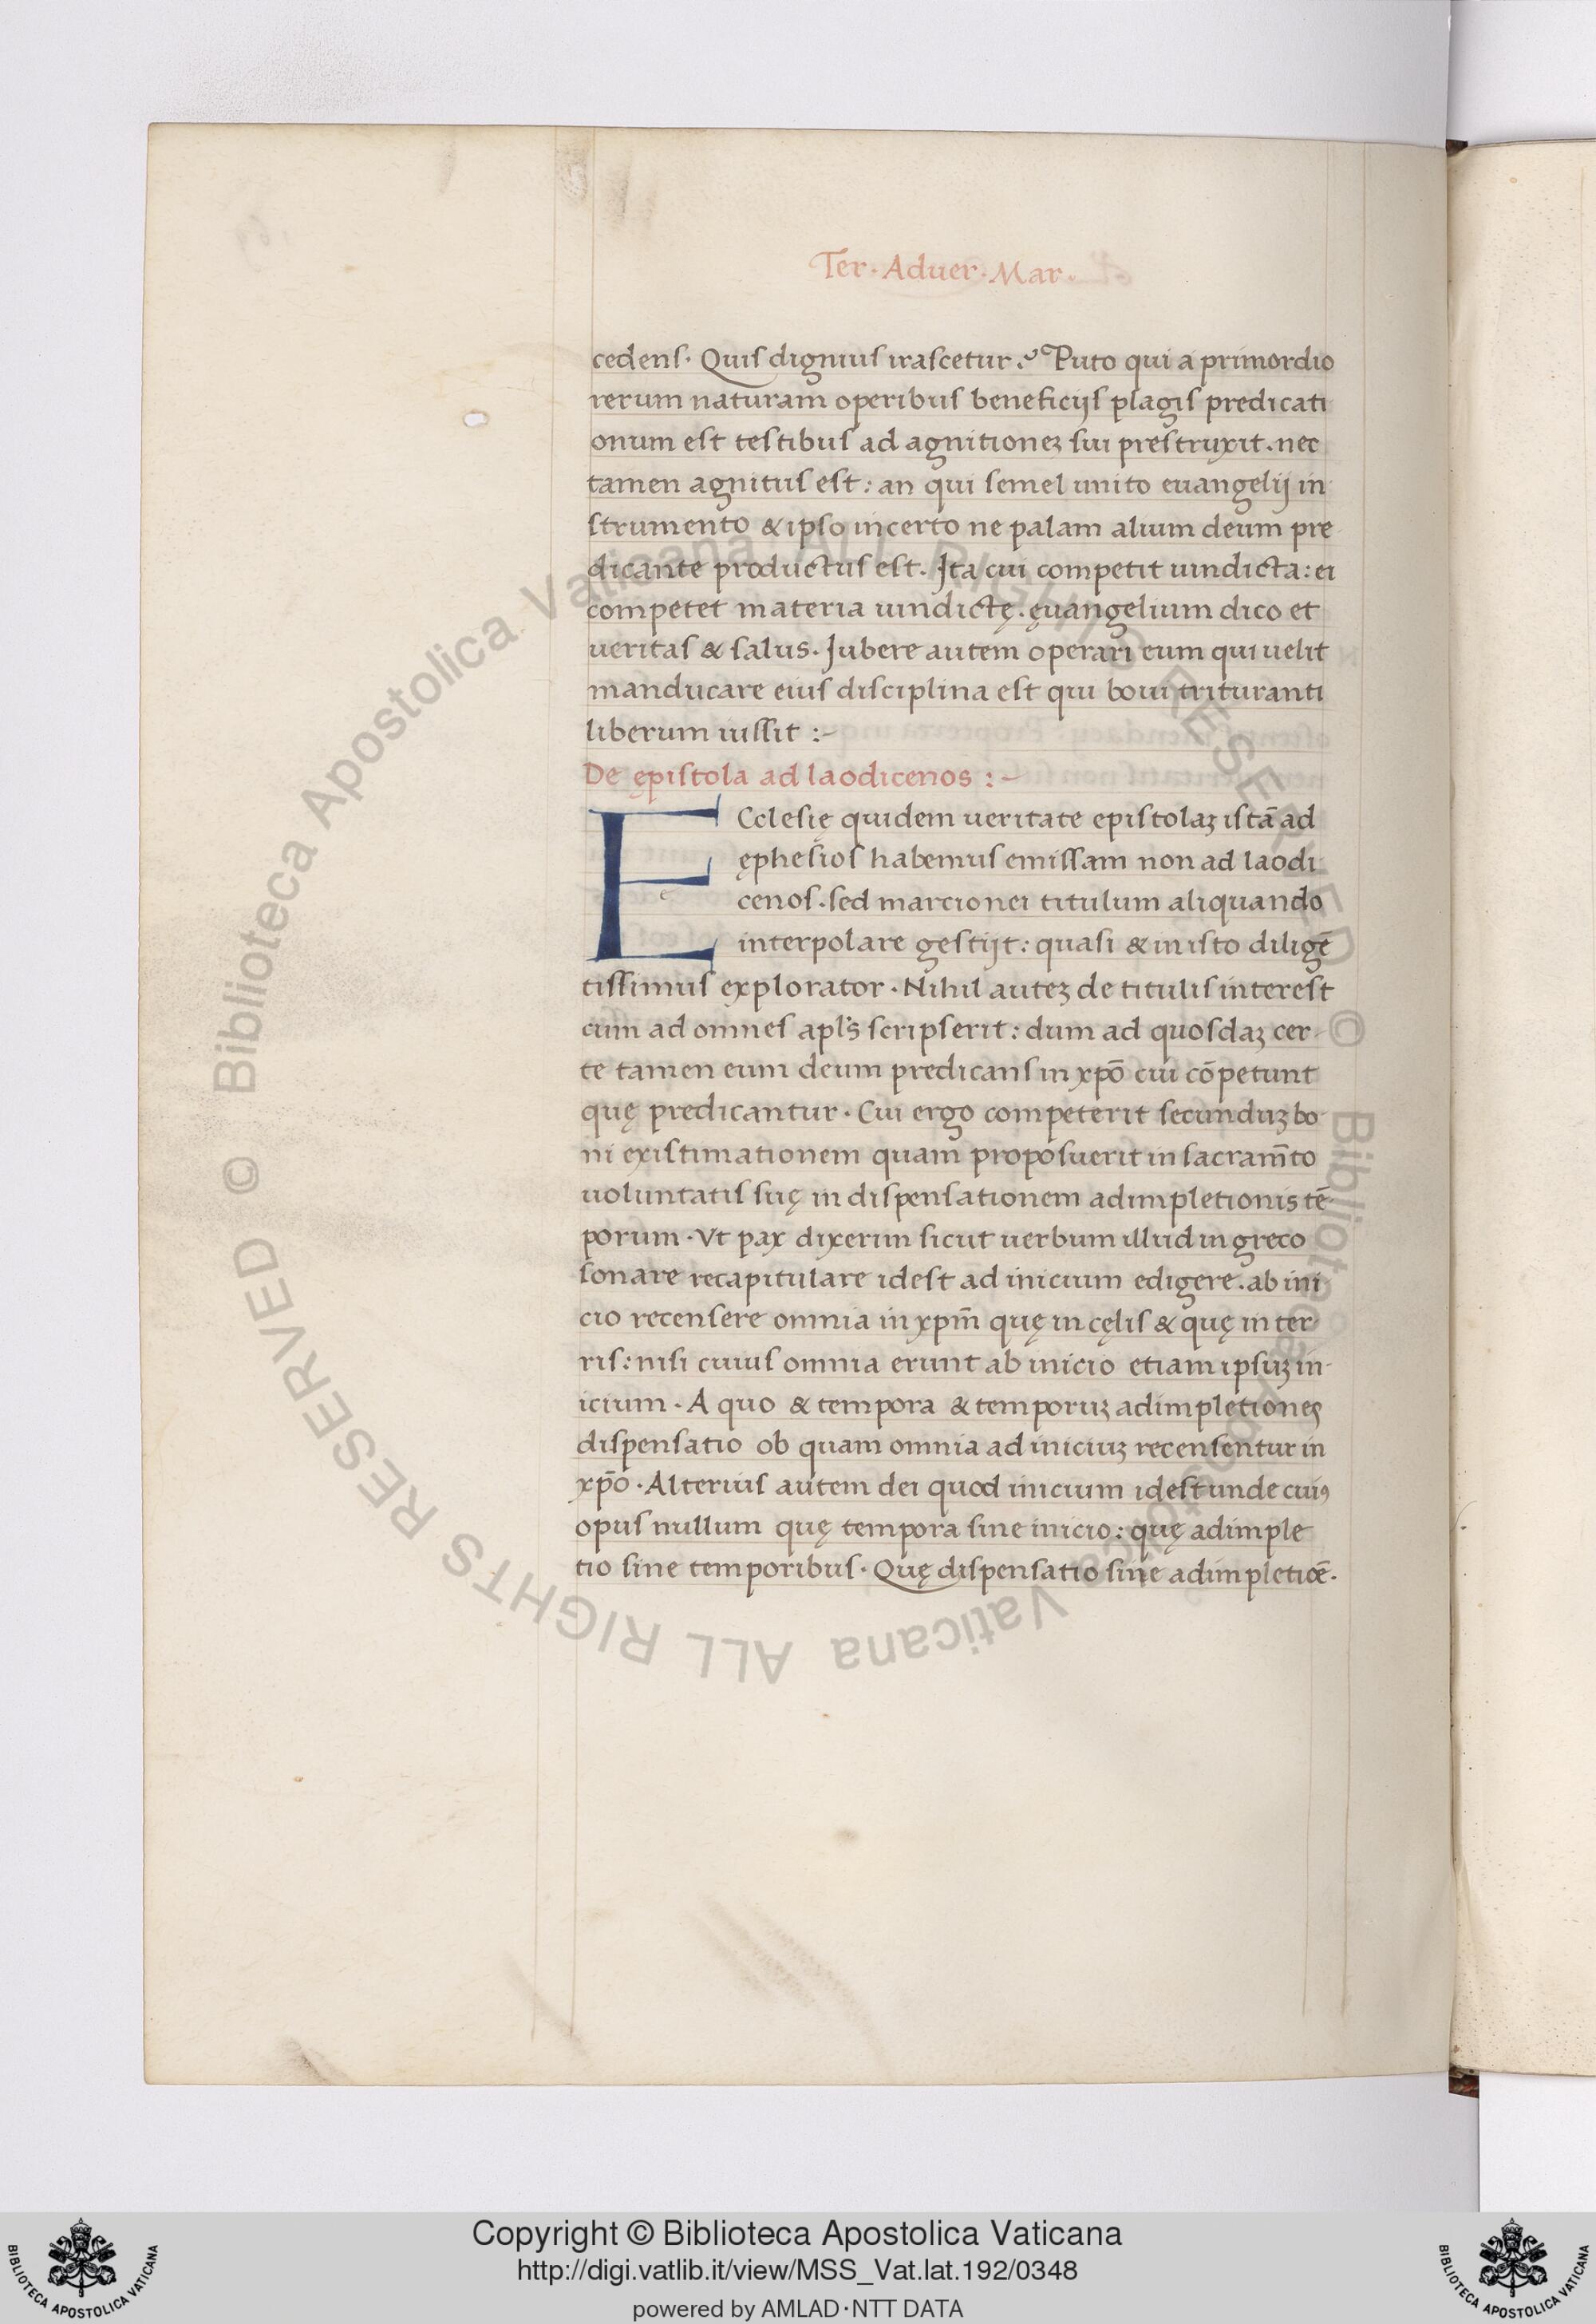 Ter · Aduer · Mar ·
cedens · Quis dignius irascetur ? Puto qui a primordio
rerum naturam operibus beneficijs plagis predicati
onum est testibus ad agnitioneꝫ sui prestruxit . nec
tamen agnitus est : an qui semel unito euangelij in
strumento & ipso incerto ne palam alium deum pre
dicante productus est . Ita cui competit uindicta : ei
competet materia uindictę . ęuangelium dico et
ueritas & salus . Jubere autem operari eum qui uelit
manducare eius disciplina est qui boui trituranti
liberum iussit :~
De ępistola ad laodicenos :~
ECclesię quidem ueritate epistolaꝫ istā ad
ęphesios habemus emissam non ad laodi
cenos . sed marcionei titulum aliquando
interpolare gestijt : quasi & in isto diligē
tissimus explorator . Nihil auteꝫ de titulis interest
cum ad omnes apl's scripserit : dum ad quosdaꝫ cer-
te tamen eum deum predicans in xpō cui cōpetunt
quę predicantur . Cui ergo competerit secunduꝫ bo
ni existimationem quam proposuerit in sacram̄to
uoluntatis suę in dispensationem adimpletionis tē-
porum . Vt pax dixerim sicut uerbum illud in greco
sonare recapitulare idest ad inicium edigere . ab ini
cio recensere omnia in xpm̄ quę in cęlis & quę in ter
ris : nisi cuius omnia erunt ab inicio etiam ipsuꝫ in-
icium . A quo & tempora & temporuꝫ adimpletiones
dispensatio ob quam omnia ad iniciuꝫ recensentur in
xpō . Alterius autem dei quod inicium idest unde cuiꝰ
opus nullum quę tempora sine inicio : quę adimple
tio sine temporibus . Quę dispensatio sine adimpletiōe .
© Biblioteca Apostolica Vaticana ALL RIGHTS RESERVED © Biblioteca Apostolica Vaticana ALL RIGHTS RESERVED
Copyright © Biblioteca Apostolica Vaticana
http://digi.vatlib.it/view/MSS_Vat.lat.192/0348
powered by AMLAD·NTT DATA
BIBLIOTECA APOSTOLICA VATICANA
BIBLIOTECA APOSTOLICA VATICANA